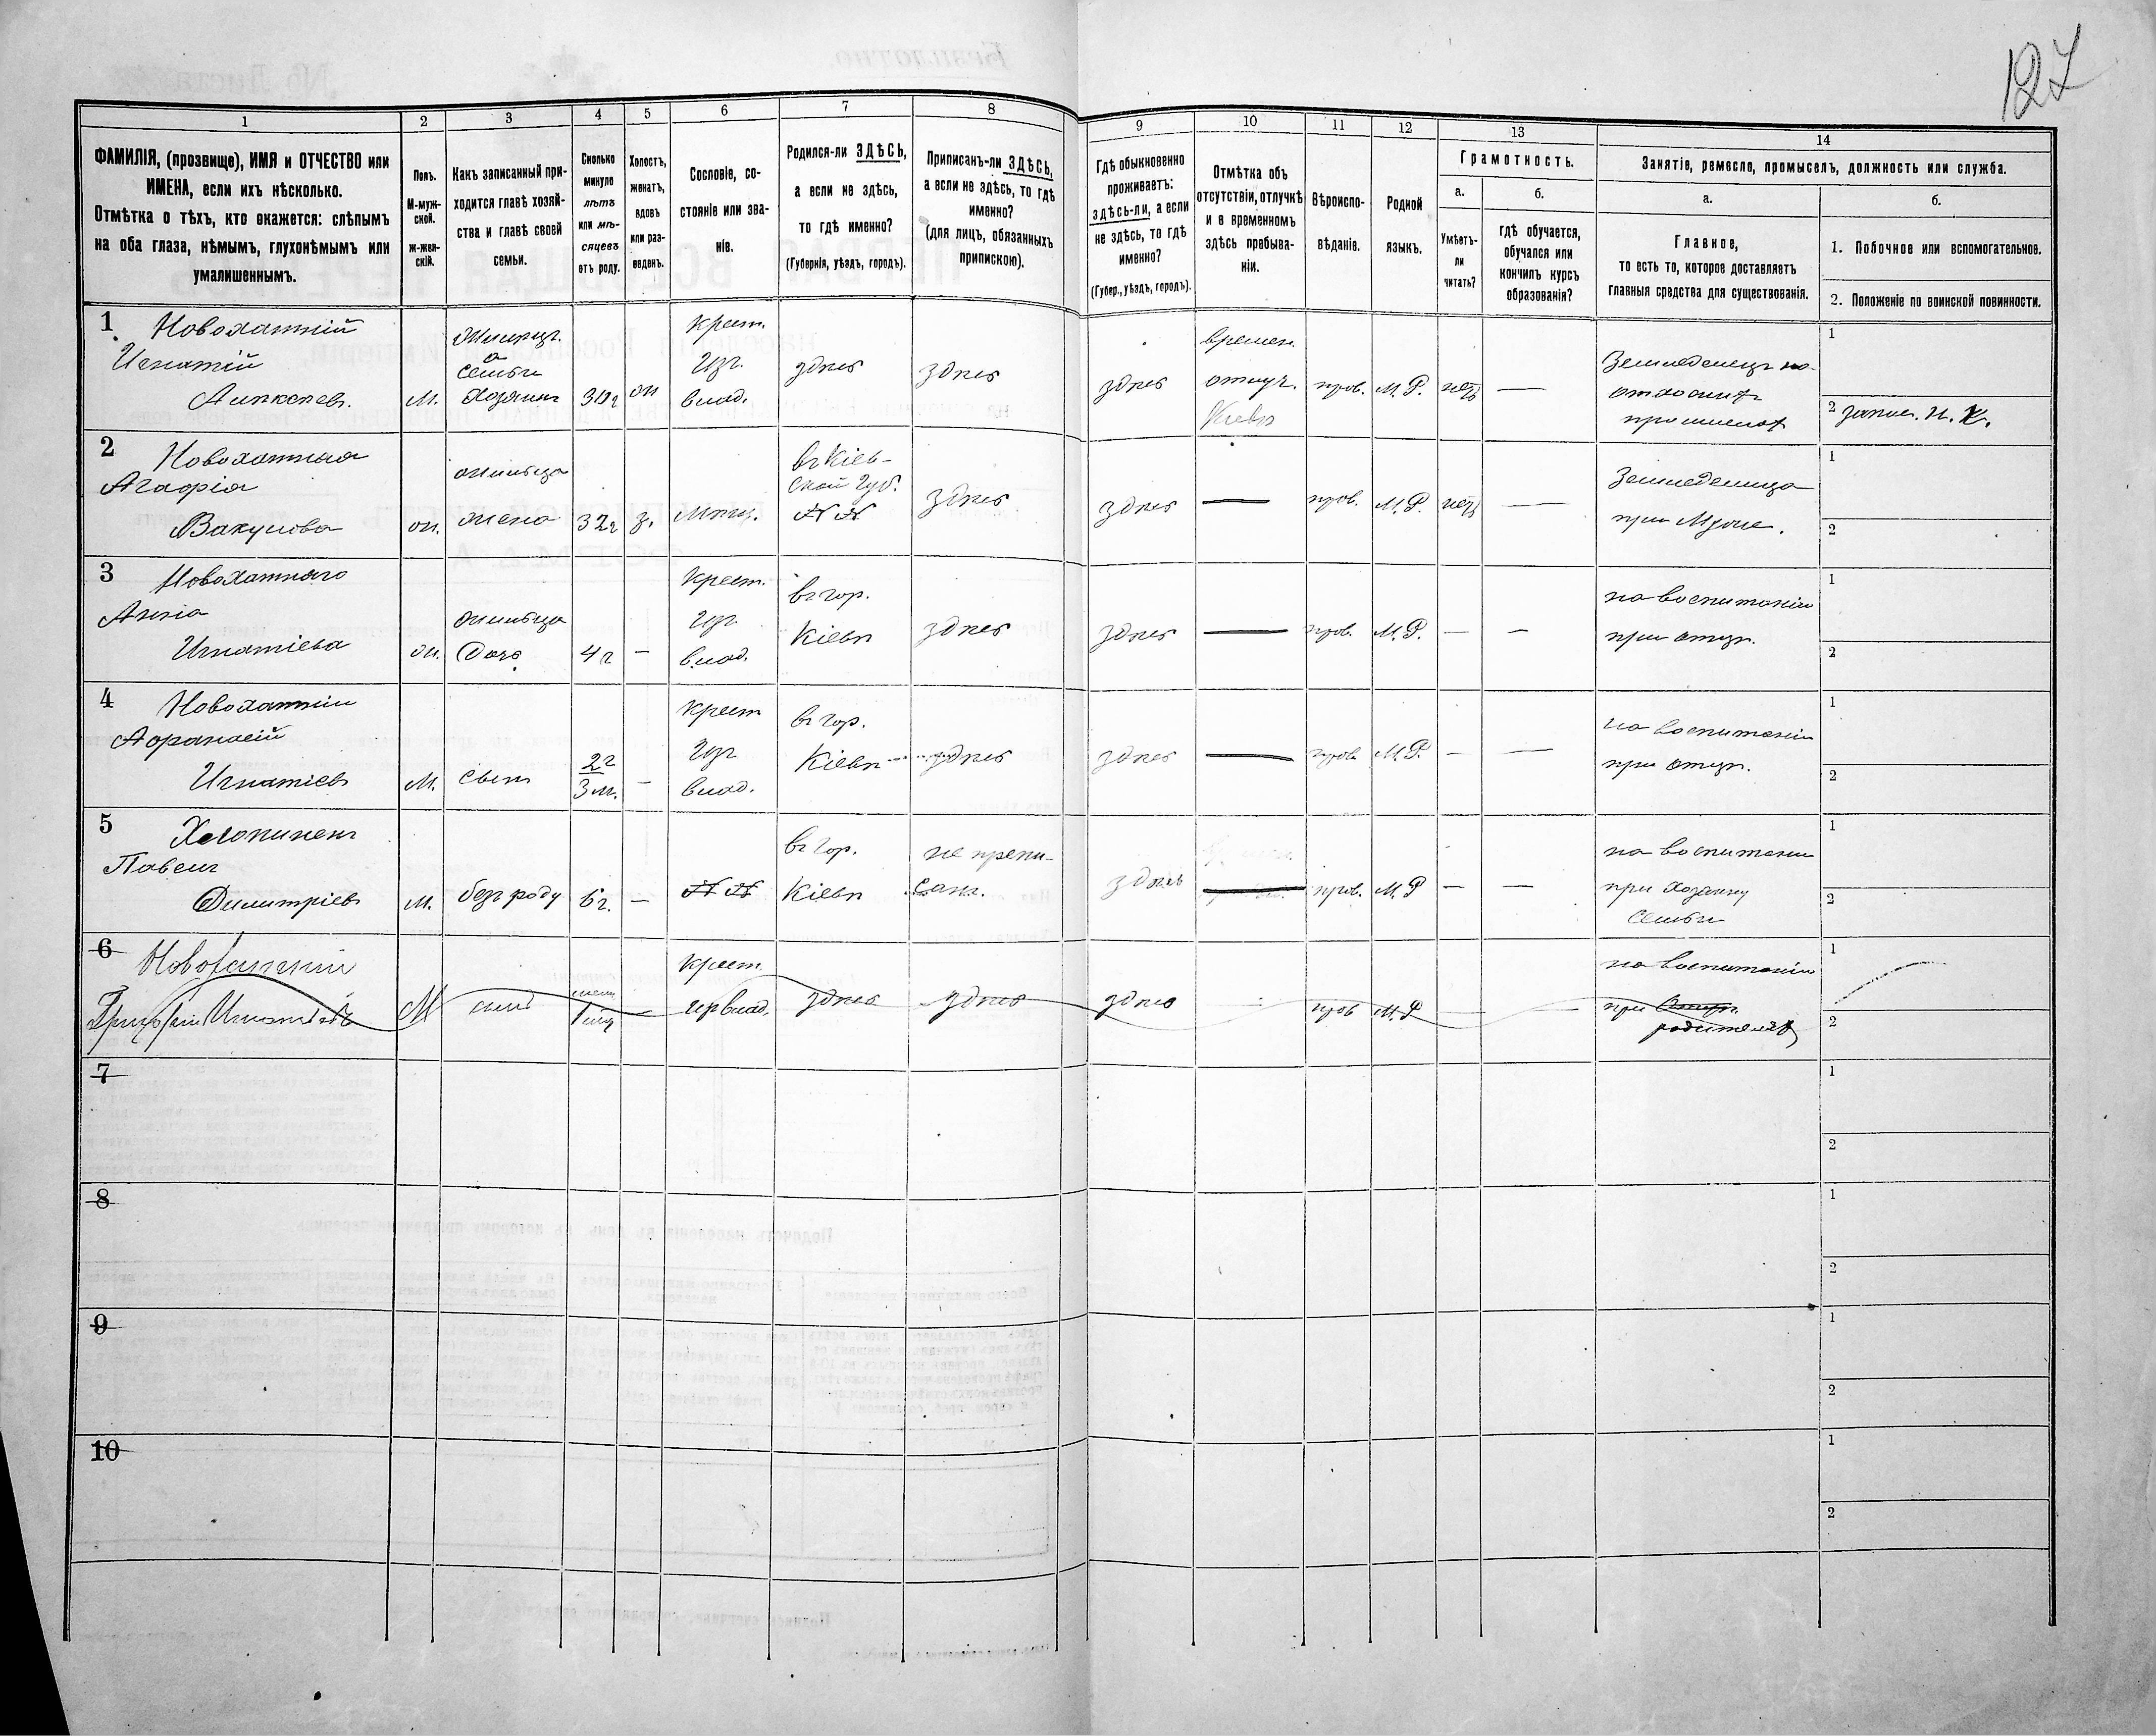 127
1
2
3
4
5
6
7
8
9
10
11
12
13
14
ФАМИЛІЯ, (прозвище), ИМЯ и ОТЧЕСТВО или
ИМЕНА, если ихъ нѣсколько.
Отмѣтка о тѣхъ, кто окажется: слѣпымъ
на оба глаза, нѣмымъ, глухонѣмымъ или
умалишеннымъ.
Полъ.
М-муж-
ской.
ж-жен-
скій.
Какъ записанный при-
ходится главѣ хозяй-
ства и главѣ своей
семьи.
Сколько
минуло
лѣтъ
или мѣ-
сяцевъ
отъ роду.
Холостъ,
женатъ,
вдовъ
или раз-
веденъ.
Сословіе, со-
стояніе или зва-
ніе.
Родился-ли ЗДѢСЬ,
а если не здѣсь,
то гдѣ именно?
(Губернія, уѣздъ, городъ).
Приписанъ-ли ЗДѢСЬ,
а если не здѣсь, то гдѣ
именно?
(для лицъ, обязанныхъ
припискою).
Гдѣ обыкновенно
проживаетъ:
здѣсь-ли, а если
не здѣсь, то гдѣ
именно?
(Губер., уѣздъ, городъ).
Отмѣтка объ
отсутствіи, отлучкѣ
и о временномъ
здѣсь пребыва-
ніи.
Вѣроиспо-
вѣданіе.
Родной
языкъ.
Грамотность.
а.
Умѣетъ-
ли
читать?
б.
гдѣ обучается,
обучался или
кончилъ курсъ
образованія?
Занятіе, ремесло, промыселъ, должность или служба.
а.
Главное,
то есть то, которое доставляетъ
главныя средства для существованія.
б.
1. Побочное или вспомогательное.
2. Положеніе по воинской повинности.
1
Новохатній
Игнатій
Алексѣев.
М.
жилецъ
а
семьи
Хозяинъ
ж
крест.
изъ
влад.
здѣсь
здѣсь
здѣсь
времен.
отлуч.
Кіевъ
прав.
М.Р.
нетъ
—
Земледелецъ на
отхожихъ
промыслах
1
2 запас. н. ч.
2
Новохатная
Агафія
Вакулова
ж.
жилица
жена
32г
з.
Мѣщ.
въ Кіев-
ской Губ.
N N
здѣсь
здѣсь
—
прав.
М.Р.
нетъ
—
Земледелица
при Мужѣ.
1
2
3
Анна
Игнатіева
ж.
жилица
Дочь
4г
—
крест.
изъ
влад.
въ гор.
Кіевѣ
здѣсь
здѣсь
—
прав.
М.Р.
—
—
на воспитаніи
при отцѣ.
1
2
4
Новохатній
Афанасій
Игнатіевъ
М.
сынъ
2г
3м.
—
крест
изъ
влад.
въ гор.
Кіевѣ
здѣсь
здѣсь
—
прав.
М.Р.
—
—
на воспитаніи
при отцѣ.
1
2
5
Павелъ
Димитріевъ
М.
безъ роду
6г.
—
N N
въ гор.
Кіевѣ
не припи-
сан.
здѣсь
—
прав.
М.Р
—
—
на воспитаніи
при хозяину
семьи
1
2
6
Новохатній
Игнатіевъ
М
сынъ
крест.
изъ влад.
здѣсь
здѣсь
здѣсь
прав
М.Р
на воспитаніи
при отцѣ
родителях
1
2
7
1
2
8
1
2
9
1
2
10
1
2